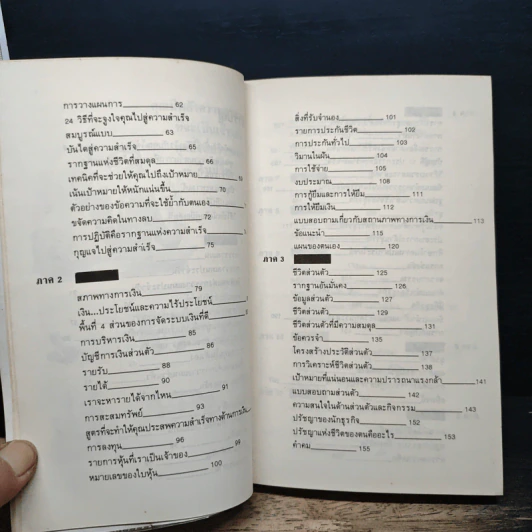 การวางแผนการ 62
24 วิธีที่จะจูงใจคุณไปสู่ความสำเร็จ
สมบูรณ์แบบ 63
บันไดสู่ความสำเร็จ 65
รากฐานแห่งชีวิตที่สมดุล 66
เทคนิคที่จะช่วยให้คุณไปถึงเป้าหมาย
เน้นเป้าหมายให้หนักแน่นขึ้น 70
ตัวอย่างของข้อความที่จะใช้ย้ำกับตนเอง
ขจัดความคิดในทางลบ 72
การปฏิบัติคือรากฐานแห่งความสำเร็จ
กุญแจไปสู่ความสำเร็จ 75
ภาค 2
สภาพทางการเงิน 79
เงิน...ประโยชน์และความไร้ประโยชน์
พื้นที่ 4 ส่วนของการจัดระบบเงินที่ดี
การบริหารเงิน 85
บัญชีการเงินส่วนตัว 86
รายรับ 88
รายได้ 90
เราจะหารายได้จากไหน 91
การสะสมทรัพย์ 93
สูตรที่จะทำให้คุณประสพความสำเร็จทางด้านการเงิน
การลงทุน 96
รายการหุ้นที่เราเป็นเจ้าของ 99
หมายเลขของใบหุ้น 100
สิ่งที่รับจำนอง 101
รายการประกันชีวิต 102
การประกันทั่วไป 103
วิมานในฝัน 104
การใช้จ่าย 105
งบประมาณ 108
การกู้ยืมและการให้ยืม 111
การให้ยืมเงิน 112
แบบสอบถามเกี่ยวกับสถานภาพทางการเงิน 113
ข้อแนะนำ 115
แผนของตนเอง 120
ภาค 3
ชีวิตส่วนตัว 125
รากฐานอันมั่นคง 126
ข้อมูลส่วนตัว 127
ชีวิตส่วนตัว 129
ชีวิตส่วนตัวที่มีความสมดุล 131
ข้อควรจำ 135
โครงสร้างประวัติส่วนตัว 137
การวิเคราะห์ชีวิตส่วนตัว 138
เป้าหมายที่แน่นอนและความปรารถนาแรงกล้า 141
แบบสอบถามส่วนตัว 142
ความสนใจในด้านส่วนตัวและกิจกรรม 143
ปรัชญาของนักธุรกิจ 152
ปรัชญาแห่งชีวิตของตนคืออะไร 153
คำคม 155